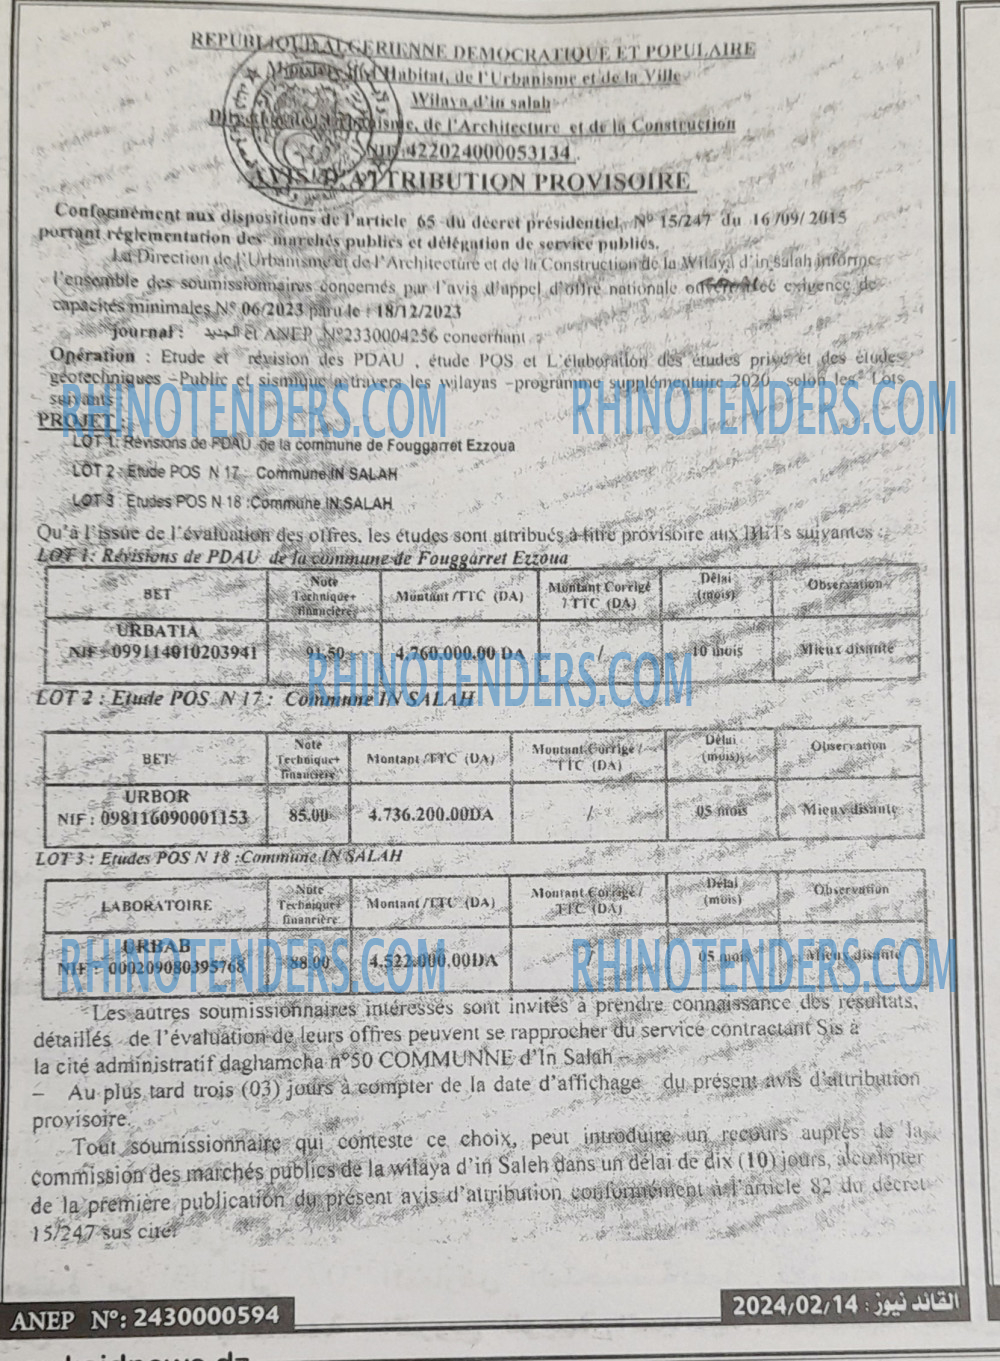 REPUBLIQUE ALGERIENNE DEMOCRATIQUE ET POPULAIRE
Ministère de l'Habitat, de l'Urbanisme et de la Ville
Wilaya d'in salah
Direction de l'Urbanisme, de l'Architecture et de la Construction
NIF: 422024000053134
AVIS D'ATTRIBUTION PROVISOIRE
Conformément aux dispositions de l'article 65 du décret présidentiel, N° 15/247 du 16/09/2015
portant réglementation des marchés publics et délégation de service publics.
La Direction de l'Urbanisme et de l'Architecture et de la Construction de la Wilaya d'in salah informe
l'ensemble des soumissionnaires concernés par l'avis d'appel d'offre nationale ouvert avec exigence de
capacités minimales N° 06/2023 paru le : 18/12/2023
journal : الجديد et ANEP N°2330004256 concernant :
Opération : Etude et révision des PDAU , étude POS et L'élaboration des études privé et des études
géotechniques –Public et sismique a travers les wilayas –programme supplémentaire 2020 selon les Lots
suivants :
PROJET :
RHINOTENDERS.COM RHINOTENDERS.COM
LOT 1: Révisions de PDAU de la commune de Fouggarret Ezzoua
LOT 2 : Etude POS N 17 : Commune IN SALAH
LOT 3 : Etudes POS N 18 :Commune IN SALAH
Qu'à l'issue de l'évaluation des offres, les études sont attribués à titre provisoire aux BETs suivantes :
LOT 1: Révisions de PDAU de la commune de Fouggarret Ezzoua
BET Note Technique+ financière Montant /TTC (DA) Montant Corrigé / TTC (DA) Délai (mois) Observation
URBATIA
NIF : 099114010203941 91.50 4.760.000.00 DA / 10 mois Mieux disante
RHINOTENDERS.COM
LOT 2 : Etude POS N 17 : Commune IN SALAH
BET Note Technique+ financière Montant /TTC (DA) Montant Corrigé / TTC (DA) Délai (mois) Observation
URBOR
NIF : 098116090001153 85.00 4.736.200.00DA / 05 mois Mieux disante
LOT 3 : Etudes POS N 18 :Commune IN SALAH
LABORATOIRE Note Technique+ financière Montant /TTC (DA) Montant Corrigé / TTC (DA) Délai (mois) Observation
URBAB
NIF : 000209080395768 88.00 4.522.000.00DA / 05 mois Mieux disante
RHINOTENDERS.COM RHINOTENDERS.COM
Les autres soumissionnaires intéressés sont invités à prendre connaissance des résultats,
détaillés de l'évaluation de leurs offres peuvent se rapprocher du service contractant Sis à
la cité administratif daghamcha n°50 COMMUNNE d'In Salah –
– Au plus tard trois (03) jours à compter de la date d'affichage du présent avis d'attribution
provisoire.
Tout soumissionnaire qui conteste ce choix, peut introduire un recours auprès de la
commission des marchés publics de la wilaya d'in Saleh dans un délai de dix (10) jours, à compter
de la première publication du présent avis d'attribution conformément à l'article 82 du décret
15/247 sus cité.
ANEP N°: 2430000594
القائد نيوز : 2024/02/14